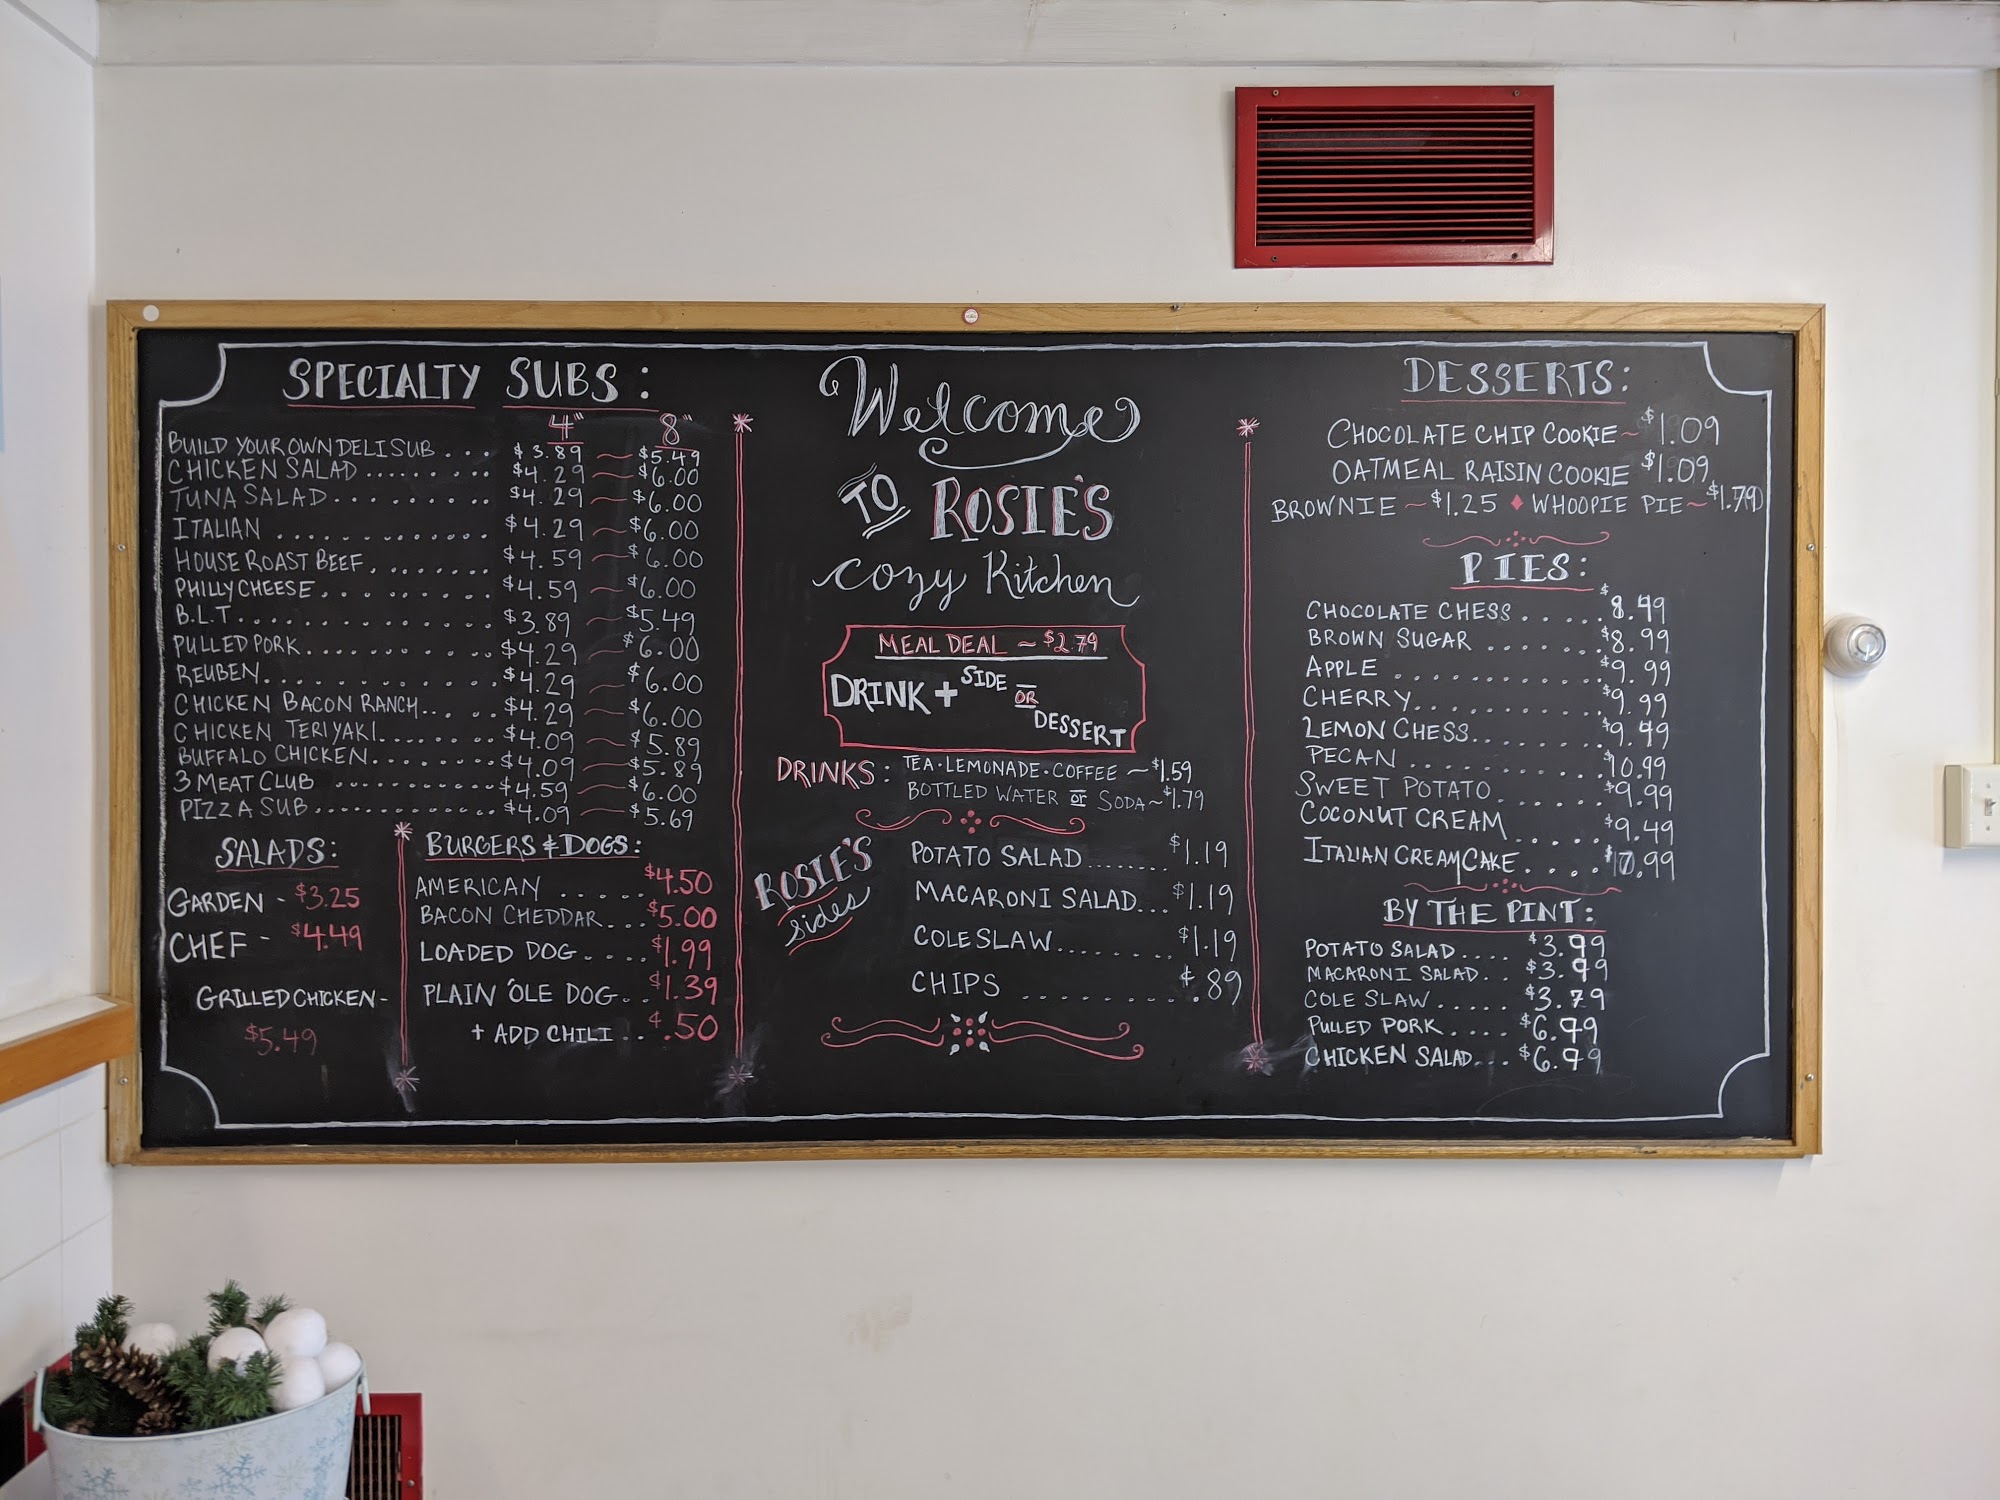 SPECIALTY SUBS:
4" 8"
BUILD YOUR OWN DELI SUB ... $3.89 ~ $5.49
CHICKEN SALAD ....... $4.29 ~ $6.00
TUNA SALAD ......... $4.29 ~ $6.00
ITALIAN ............. $4.29 ~ $6.00
HOUSE ROAST BEEF ........ $4.59 ~ $6.00
PHILLY CHEESE ........... $4.59 ~ $6.00
B.L.T .............. $3.89 ~ $5.49
PULLED PORK ............ $4.29 ~ $6.00
REUBEN .............. $4.29 ~ $6.00
CHICKEN BACON RANCH ..... $4.29 ~ $6.00
CHICKEN TERIYAKI ........ $4.09 ~ $5.89
BUFFALO CHICKEN ......... $4.09 ~ $5.89
3 MEAT CLUB ............ $4.59 ~ $6.00
PIZZA SUB ............. $4.09 ~ $5.69
SALADS:
GARDEN - $3.25
CHEF - $4.49
GRILLED CHICKEN -
$5.49
BURGERS & DOGS:
AMERICAN ..... $4.50
BACON CHEDDAR ... $5.00
LOADED DOG .... $1.99
PLAIN 'OLE DOG .. $1.39
+ ADD CHILI .. ¢.50
Welcome
TO ROSIE'S
cozy Kitchen
MEAL DEAL ~ $2.79
DRINK + SIDE OR DESSERT
DRINKS: TEA · LEMONADE · COFFEE ~ $1.59
BOTTLED WATER or SODA ~ $1.79
ROSIE'S
sides
POTATO SALAD ...... $1.19
MACARONI SALAD ... $1.19
COLE SLAW ........ $1.19
CHIPS ......... ¢.89
DESSERTS:
CHOCOLATE CHIP COOKIE ~ $1.09
OATMEAL RAISIN COOKIE $1.09
BROWNIE ~ $1.25 ♦ WHOOPIE PIE ~ $1.79
PIES:
CHOCOLATE CHESS ..... $8.99
BROWN SUGAR ....... $8.99
APPLE ............ $9.99
CHERRY ........... $9.99
LEMON CHESS ........ $9.49
PECAN ............ $10.99
SWEET POTATO ...... $9.99
COCONUT CREAM ..... $9.49
ITALIAN CREAM CAKE .... $10.99
BY THE PINT:
POTATO SALAD .... $3.99
MACARONI SALAD .. $3.99
COLE SLAW ..... $3.79
PULLED PORK .... $6.99
CHICKEN SALAD ... $6.99